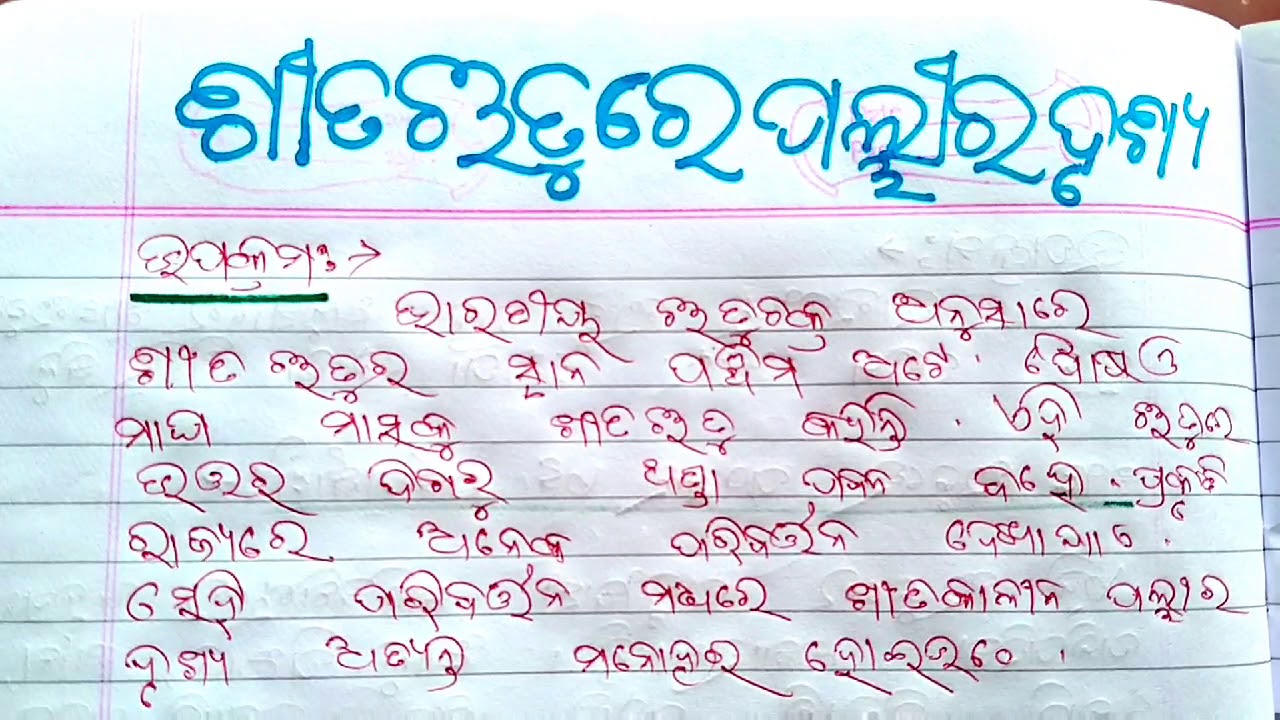 ଶୀତଋତୁରେ ପଲ୍ଲୀର ଦୃଶ୍ୟ
ଉପକ୍ରମଃ→
ଭାରତୀୟ ଋତୁଚକ୍ର ଅନୁସାରେ
ଶୀତ ଋତୁର ସ୍ଥାନ ପଞ୍ଚମ ଅଟେ. ପୌଷ ଓ
ମାଘ ମାସକୁ ଶୀତଋତୁ କହନ୍ତି. ଏହି ଋତୁରେ
ଉତ୍ତର ଦିଗରୁ ଥଣ୍ଡା ପବନ ବହେ. ପ୍ରକୃତି
ରାଜ୍ୟରେ ଅନେକ ପରିବର୍ତ୍ତନ ଦେଖାଯାଏ.
ସେହି ପରିବର୍ତ୍ତନ ମଧ୍ୟରେ ଶୀତକାଳୀନ ପଲ୍ଲୀର
ଦୃଶ୍ୟ ଅତ୍ୟନ୍ତ ମନୋହର ହୋଇଥାଏ.